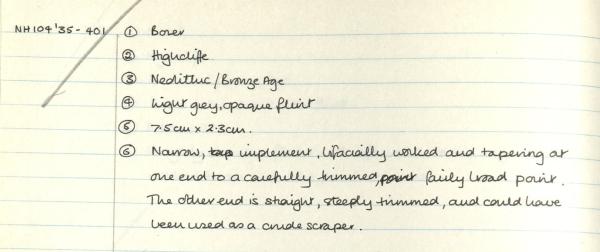 NH104'35-401 ① Borer
② Highcliffe
③ Neolithic/Bronze Age
④ Light grey, opaque flint
⑤ 7.5cm x 2.3cm.
⑥ Narrow, implement, bifacially worked and tapering at
one end to a carefully trimmed, fairly broad point.
The other end is straight, steeply trimmed, and could have
been used as a crude scraper.